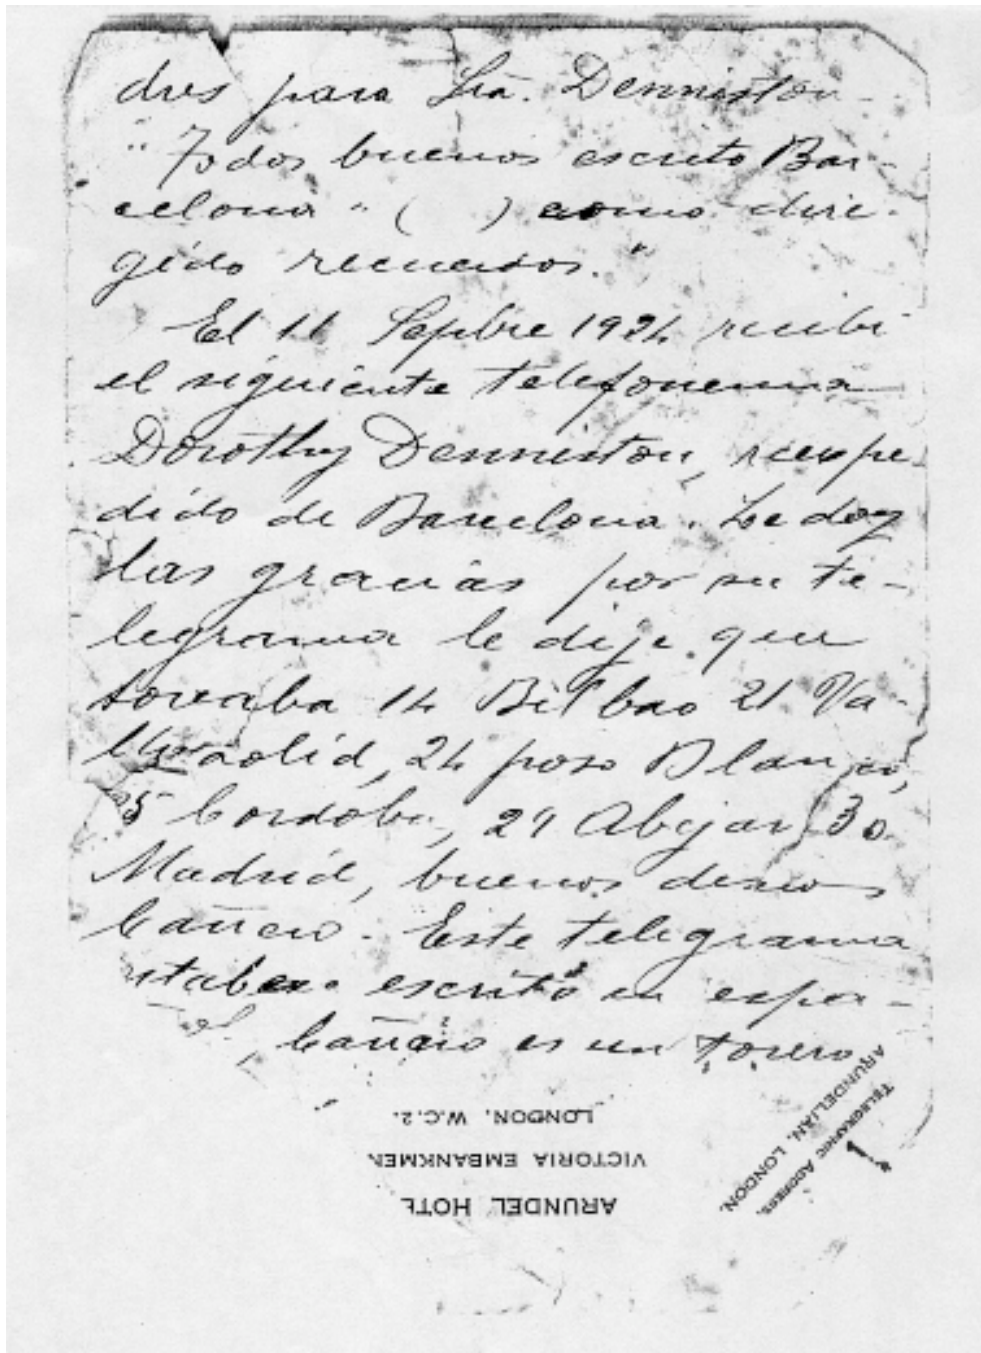 dres para Sra. Denniston -
" Todos buenos escrito Bar-
celona " ( ) como dire-
gido recuerdos."
El 11 Sepbre 1924 recibi
el siguiente telefonema
Dorothy Denniston, reexpe-
dido de Barcelona. Le doy
las gracias por su te-
legrama le dije que
toreaba 14 Bilbao 21 Va-
lladolid, 24 pozo Blanco,
25 Cordoba, 29 Abejar, 30
Madrid, buenos deseos
Cañero. Este telegrama
estaba escrito en espa-
ñol, Cañero es un torero
ARUNDEL HOTE
VICTORIA EMBANKMEN
LONDON, W.C.2.
TELEGRAPHIC ADDRESS,
ARUNDELIAN, LONDON.